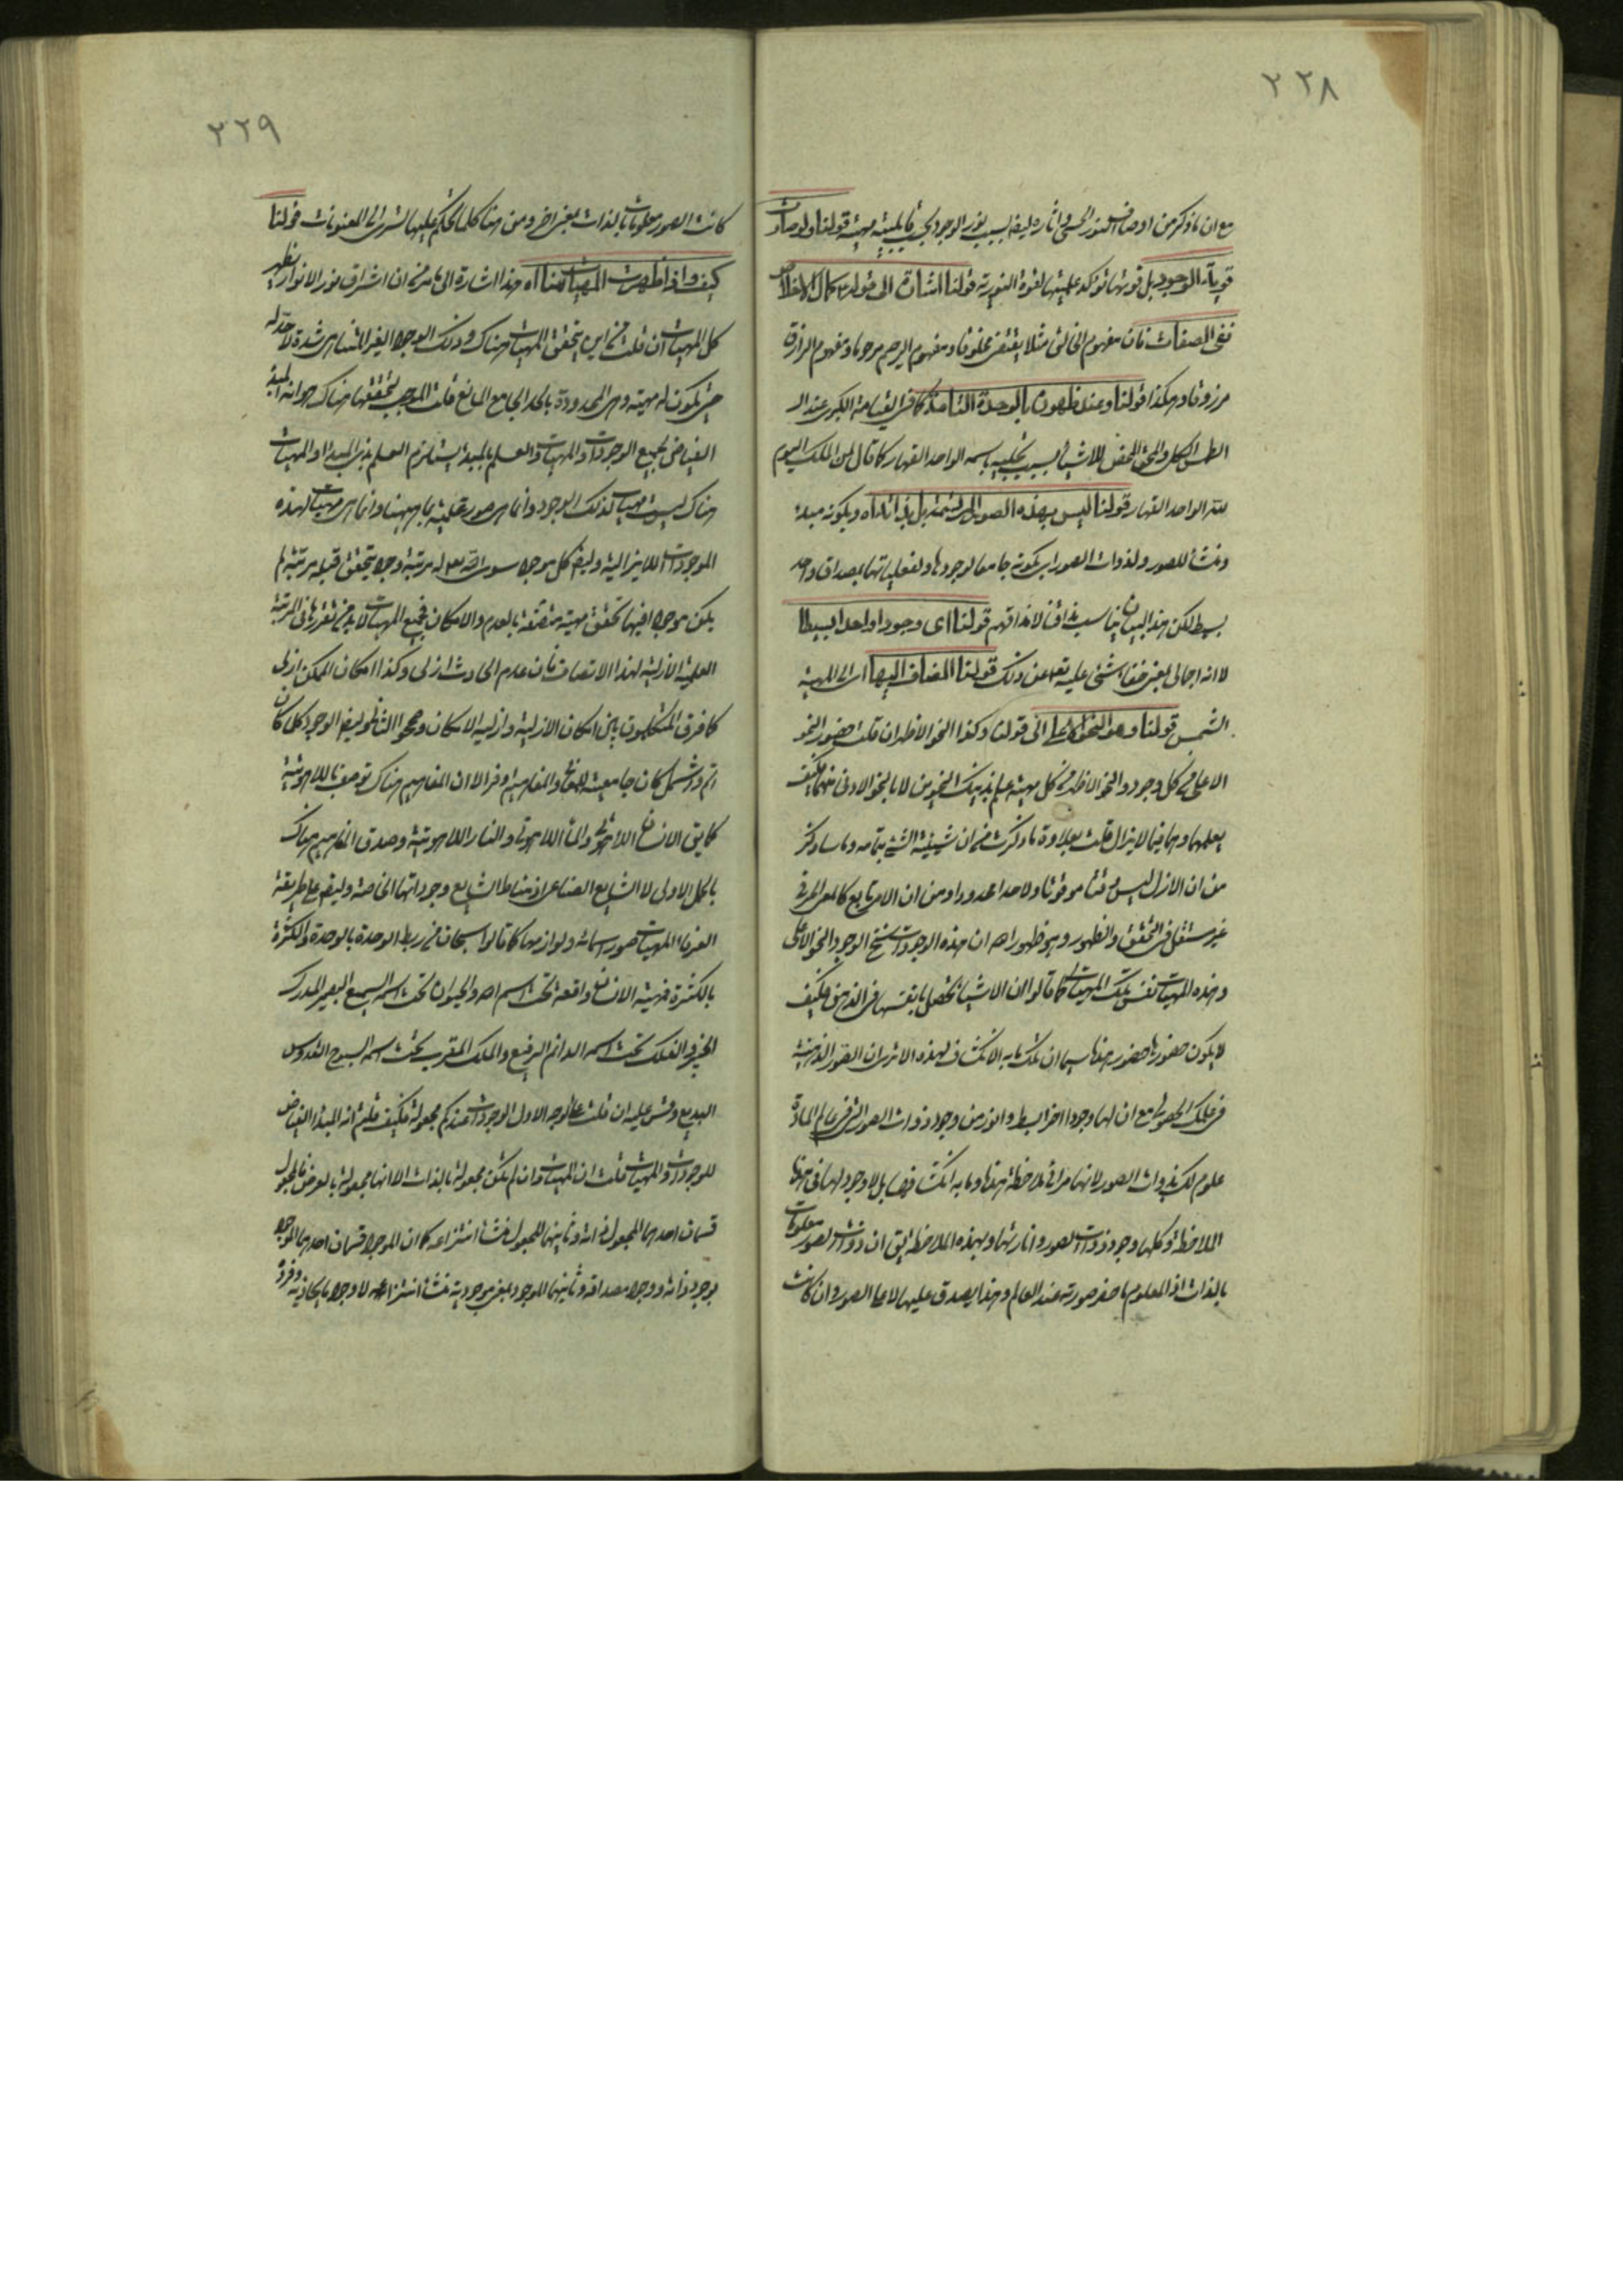 ٢٢٨
مع ان ما ذكر من اوصاف النور الحسى واثاره ليضا بسبب نور الوجود قولنا ولو صارت
قوياء الوجود بل قويتها تؤكد علميتها لقوة النورية قولنا اشارة الى قوله ع كمال الاخلاص
نفى الصفات فان مفهوم الخالق مثلا يقتضى مخلوقا ومفهوم الرحيم مرحوما ومفهوم الرازق
مرزوقا وهكذا قولنا وعند ظهوره بالوحدة التامة كما فى القيامة الكبرى عند
الطمس الكلى والمحو المحض للاشياء بسبب تجليه باسمه الواحد القهار كما قال لمن الملك اليوم
لله الواحد القهار قولنا ليس بهذه الصور المرتسمة بل بذاته اه وبكونه مبدء
ومنشأ للصور ولذوات الصور اى بكونه جامعا لوجودها ولفعلياتها بمصداق واحد
بسيط لكن هذا البيان يناسب مذاقنا لا مذاقهم قولنا اى وجودا واحدا بسيطا
لا انه اجمالى بمعنى خفاء شئ عليه تعالى عن ذلك قولنا المضاف اليها اى الى المهية
الشمس قولنا وهو النحو الاعلى الى قولنا وكذا النحو الاظهر ان قلت حضور النحو
الاعلى من كل وجود والنحو الاظهر من كل مهية علم بذينك النحوين لا بالنحو الادنى منهما فكيف
يعلمهما وهما فيما لا يزال قلت بعلاوة ما ذكرت من ان شيئية الشئ بتمامه وما سأذكر
من ان الازل ليس وقتا موقوتا ولا حدا محدودا ومن ان الامر تابع كالمعنى الحرفى
غير مستقل فى التحقق والظهور وهو ظهور الله ان هذه الوجودات سنخ الوجود النحو الاعلى
وهذه المهيات نفس تلك المهيات كما قالوا ان الاشياء تحصل بانفسها فى الذهن فكيف
لا يكون حضورها حضور هذا سيما ان تلك ما به الانكشاف لهذه الا ترى ان الصور الذهنية
فى علمك الحصولى مع ان لها وجودا اخر ابسط وانور من وجود ذوات الصور التى فى عالم المادة
علوم لك بذوات الصور لانها مرائى ملاحظة هذه وما به انكشافها بل لا وجود لها فى هذا
الملاحظة وكلها وجود ذوات الصور واناريتها وبهذه الملاحظة يق ان ذوات الصور معلومات
بالذات اذ المعلوم ما حضر صورته عند العالم وهذا يصدق عليها لا على الصور وان كانت
٢٢٩
كانت الصور معلومات بالذات بمعنى اخر ومن هنا كلما تحكم عليها تسرى الى المعنونات قولنا
كيف واذا ظهرت المهيات هنا اه هذا اشارة الى ما مر من ان اشراق نور الانوار يظهر
كل المهيات ان قلت من اين تحقق المهيات هناك وذلك الوجود الغير المتناهى شدة لا حد له
حتى يكون له مهية وهى المحدودة بالحد الجامع المانع قلت الموجب لتحققها هناك هو انه المبدء
الفياض لجميع الوجودات والمهيات والعلم بالمبدء يستلزم العلم بذى المبدء والمهيات
هناك ليست مهيات لذلك الوجود وانما هى صور علمية بما هيهنا وانما هى مهيات لهذه
الموجودات اللايزالية وليضا كل موجود سوى الله تعالى له مرتبة وجود تحقق قبله مرتبة لم
يكن موجودا فيها تحقق مهية متصفة بالعدم والامكان فجميع المهيات لابد من تقررها فى المرتبة
العلمية الازلية لهذا الاتصاف فان عدم الحادث ازلى وكذا امكان الممكن ازلى
كما فرق المتكلمون بين امكان الازلية وازلية الامكان وصححوا الثانى وليضا الوجود كلما كان
اتم واشمل كان جامعيته للمعانى والمفاهيم اوفر الا ان المفاهيم هناك توصف باللاهوتية
كما يق الانسان اللاهوتى والماء اللاهوتى والنار اللاهوتية وصدق المفاهيم هناك
بالحمل الاولى لا الشايع الصناعى اذ مناط الشايع وجوداتها الخاصة وليضا على طريقة
العرفاء المهيات صور اسمائه ولوازمها كما قالوا سبحان من ربط الوحدة بالوحدة والكثرة
بالكثرة فمهية الانسان واقعة تحت اسم الله والحيوان تحت اسمه السميع البصير المدرك
الخبير والفلك تحت اسمه الدائم الرفيع والملك المقرب تحت اسمه السبوح القدوس
البديع وقس عليه ان قلت على الوجه الاول الوجودات عندكم مجعولة فكيف قلتم انه المبدء الفياض
للوجودات والمهيات قلت ان المهيات وان لم تكن مجعولة بالذات الا انها مجعولة بالعرض فالمجعول
قسمان احدهما المجعول بذاته وثانيهما المجعول منشأ انتزاعه كما ان الموجود قسمان احدهما الموجود
بوجود ذاته ووجود مصداقه وثانيهما الموجود بمعنى موجودية منشأ انتزاعه لا وجود ما يحاذيه وفرد